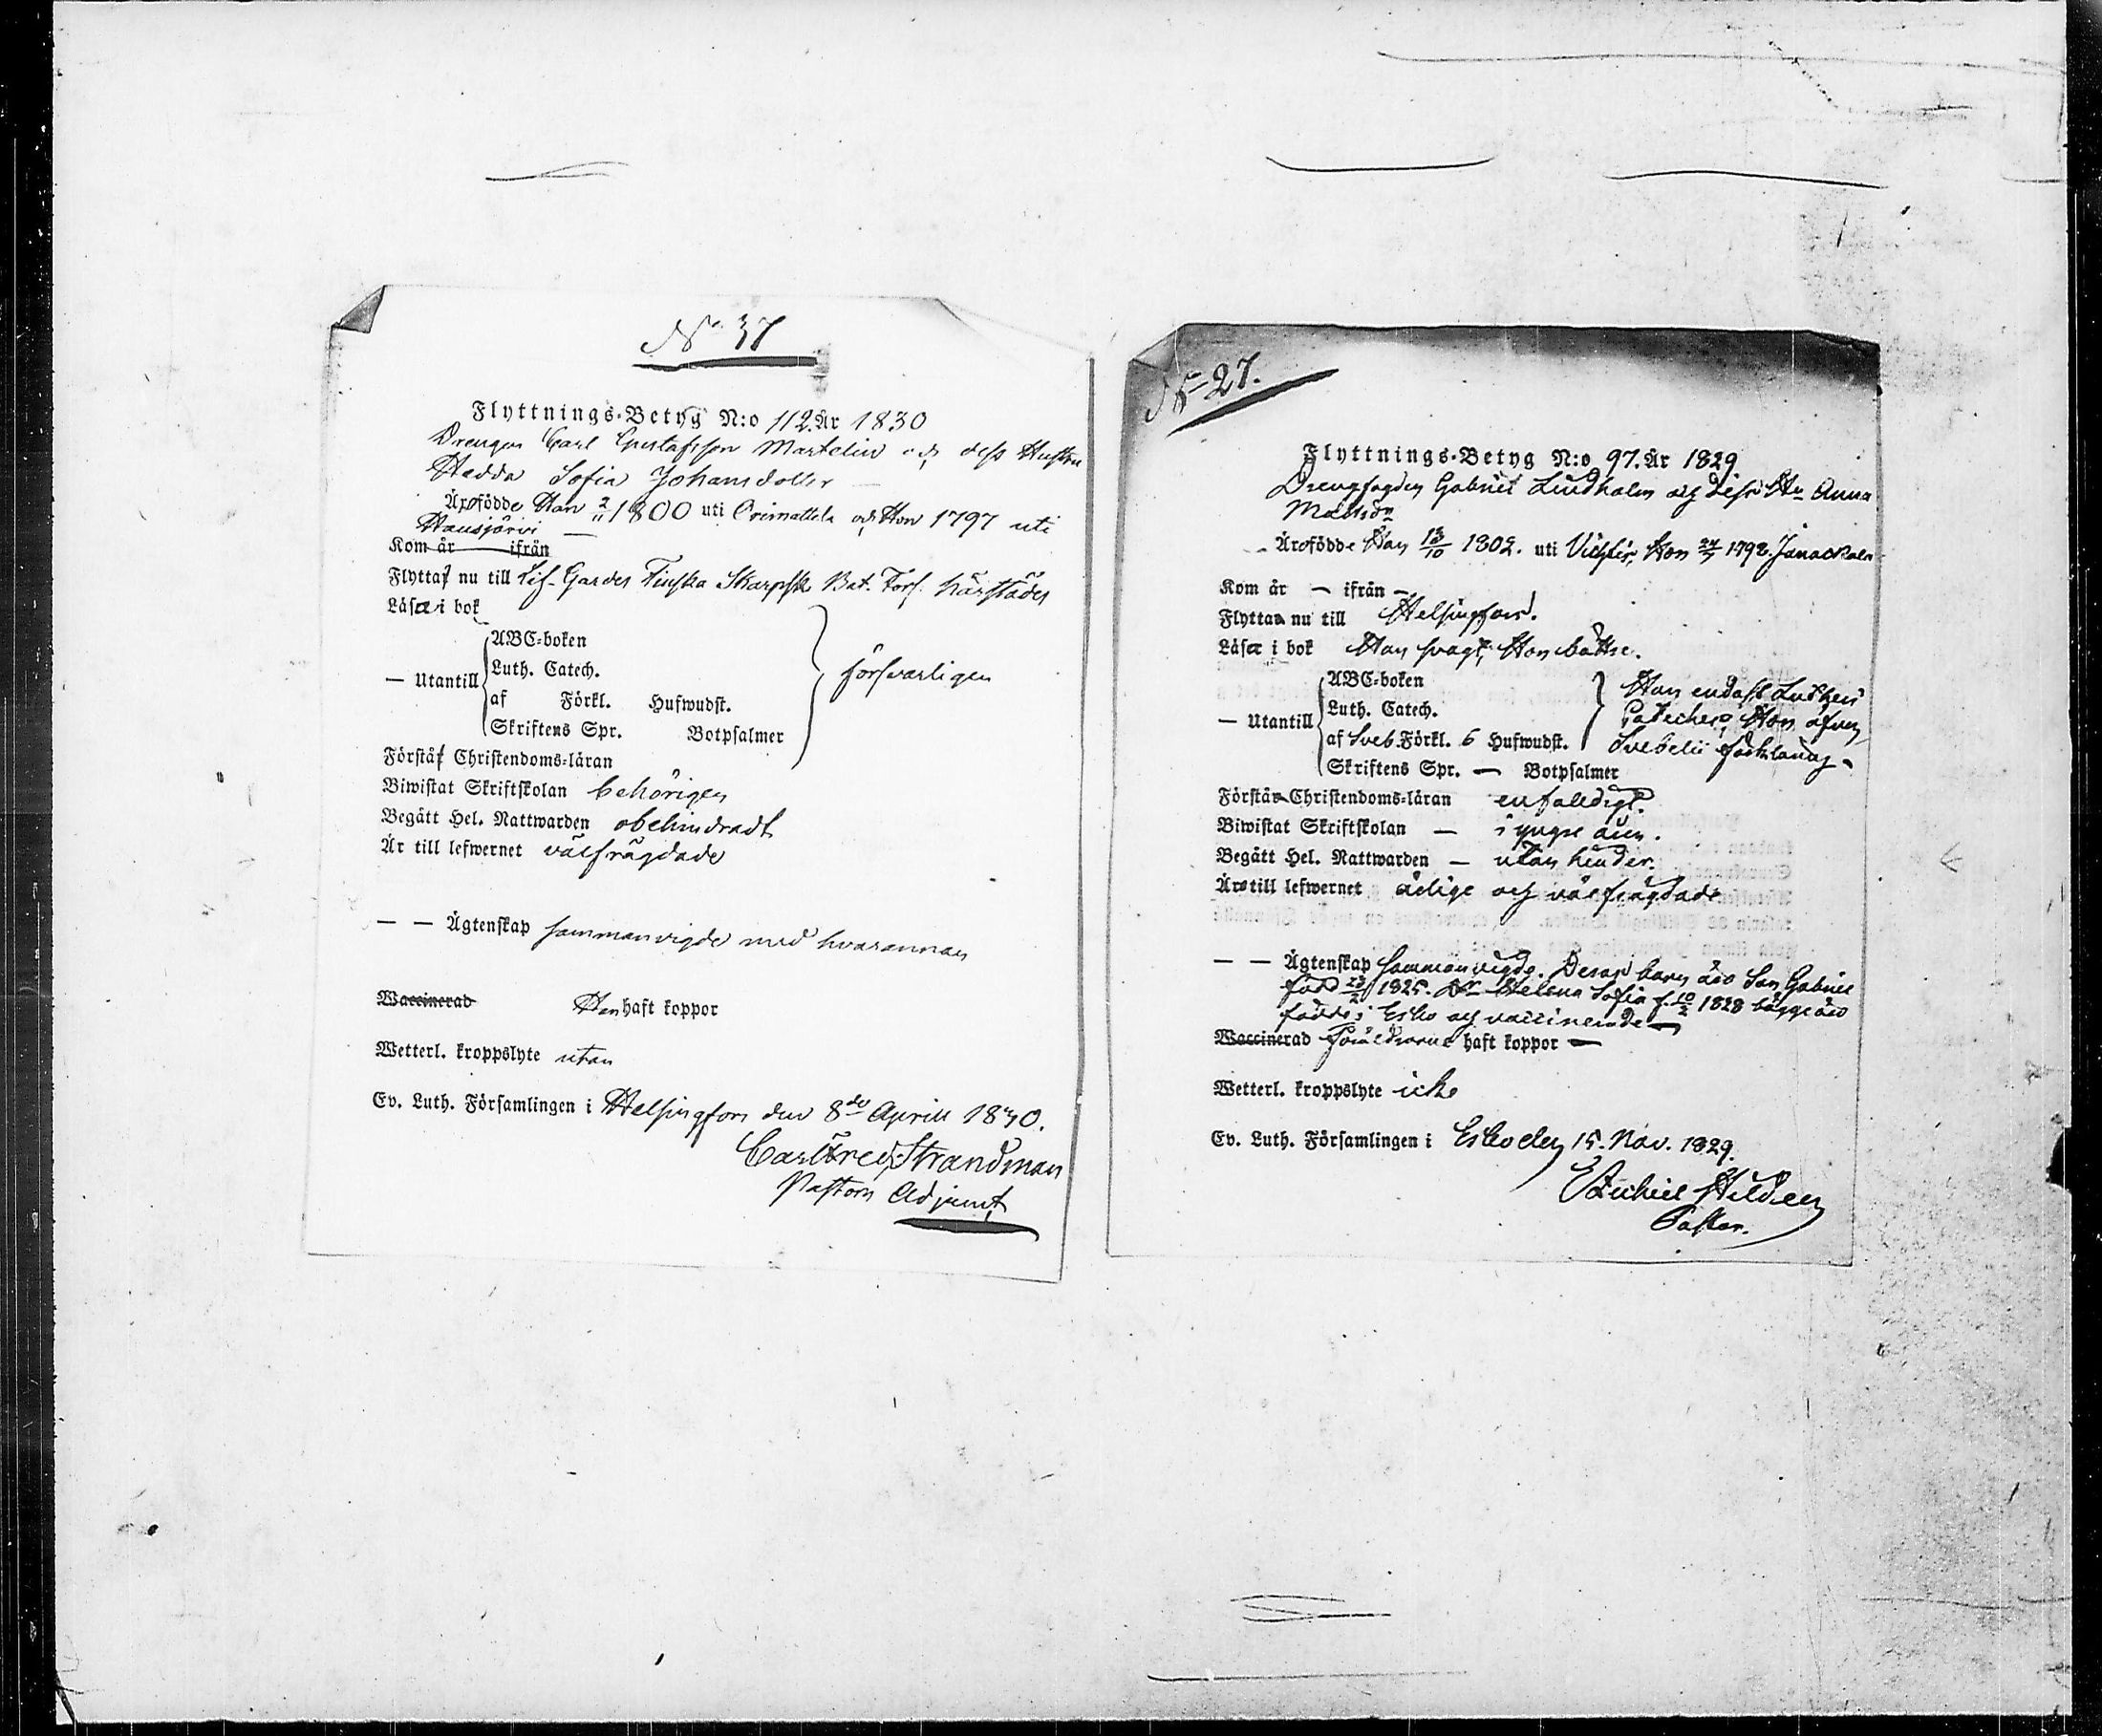 No 37
Flyttnings-Betyg N:o 112. År 1830
Drengen Carl Gustafsson Martelin och dess Hustru
Hedda Sofia Johansdotter —
Äro födde Han 2/11 1800 uti Orimattila och Hon 1797 uti
Hausjärvi —
Kom år ifrån
Flytta nu till Lif-Gardes Finska Skarpsk. Bat. Förs. härstädes
Läsa i bok
ABC-boken
Luth. Catech.
— Utantill
af Förkl. Hufwudst.
Skriftens Spr. Botpsalmer
försvarligen
Förstå Christendoms-läran
Biwistat Skriftskolan behörigen
Begått Hel. Nattwarden obehindradt
Är till lefwernet välfrägdade
— — Ägtenskap sammanvigde med hvarannan
Waccinerad Han haft koppor
Wetterl. kroppslyte utan
Ev. Luth. Församlingen i Helsingfors den 8de Aprill 1830.
Carl Fred. Strandman
Pastors Adjunct
No 27.
Flyttnings-Betyg N:o 97. År 1829
Gabriel Lindholm och dess Hu Anna
Matsdr
Äro födde Han 13/10 1802. uti Vichtis, Hon 24/7 1798. Janackala
Kom år — ifrån —
Flytta nu till Helsingfors.
Läsa i bok Han svagt, Hon bättre.
ABC-boken
Luth. Catech.
— Utantill
af Sveb. Förkl. 6 Hufwudst.
Skriftens Spr. — Botpsalmer
Han endast Lutheri
Cateches, Hon äfven
Svebelii förklaring —
Förstå Christendoms-läran enfaldigt.
Biwistat Skriftskolan — i yngre åren.
Begått Hel. Nattwarden — utan hinder.
Äro till lefwernet ärlige och välfrägdade
— — Ägtenskap Sammanvigde. Deras barn äro Son Gabriel
född 23/2 1825. Dr Helena Sofia f. 10/2 1828 bägge äro
födde i Esbo och vaccinerade —
Waccinerad Föräldrarne haft koppor —
Wetterl. kroppslyte icke
Ev. Luth. Församlingen i Esbo den 15. Nov. 1829.
Ezechiel Hildeen
Pastor.